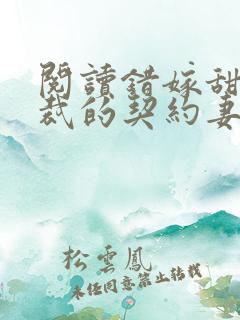 閱讀錯嫁甜
裁的契約妻
松雲鳳
未經同意禁止轉載